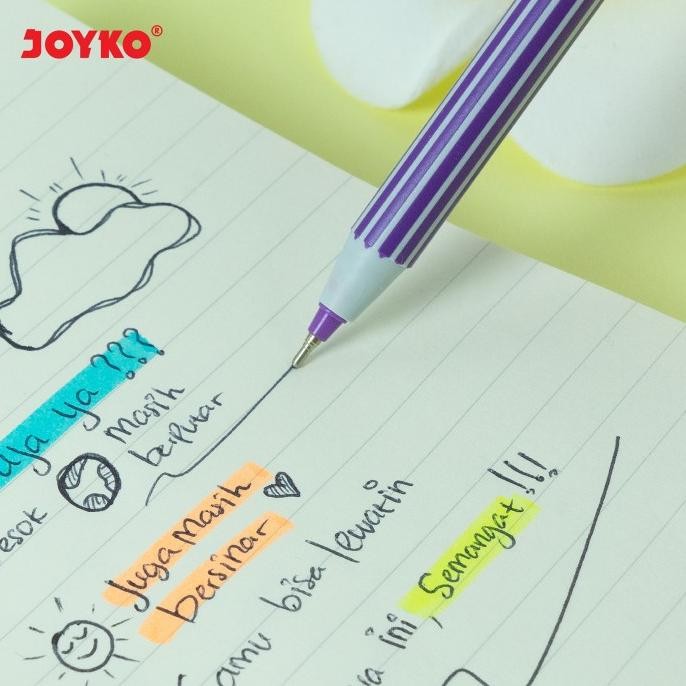 JOYKO®
ya ???
masih
berputar
esok
Juga masih
bersinar
kamu bisa lewatin
ini, Semangat !!!